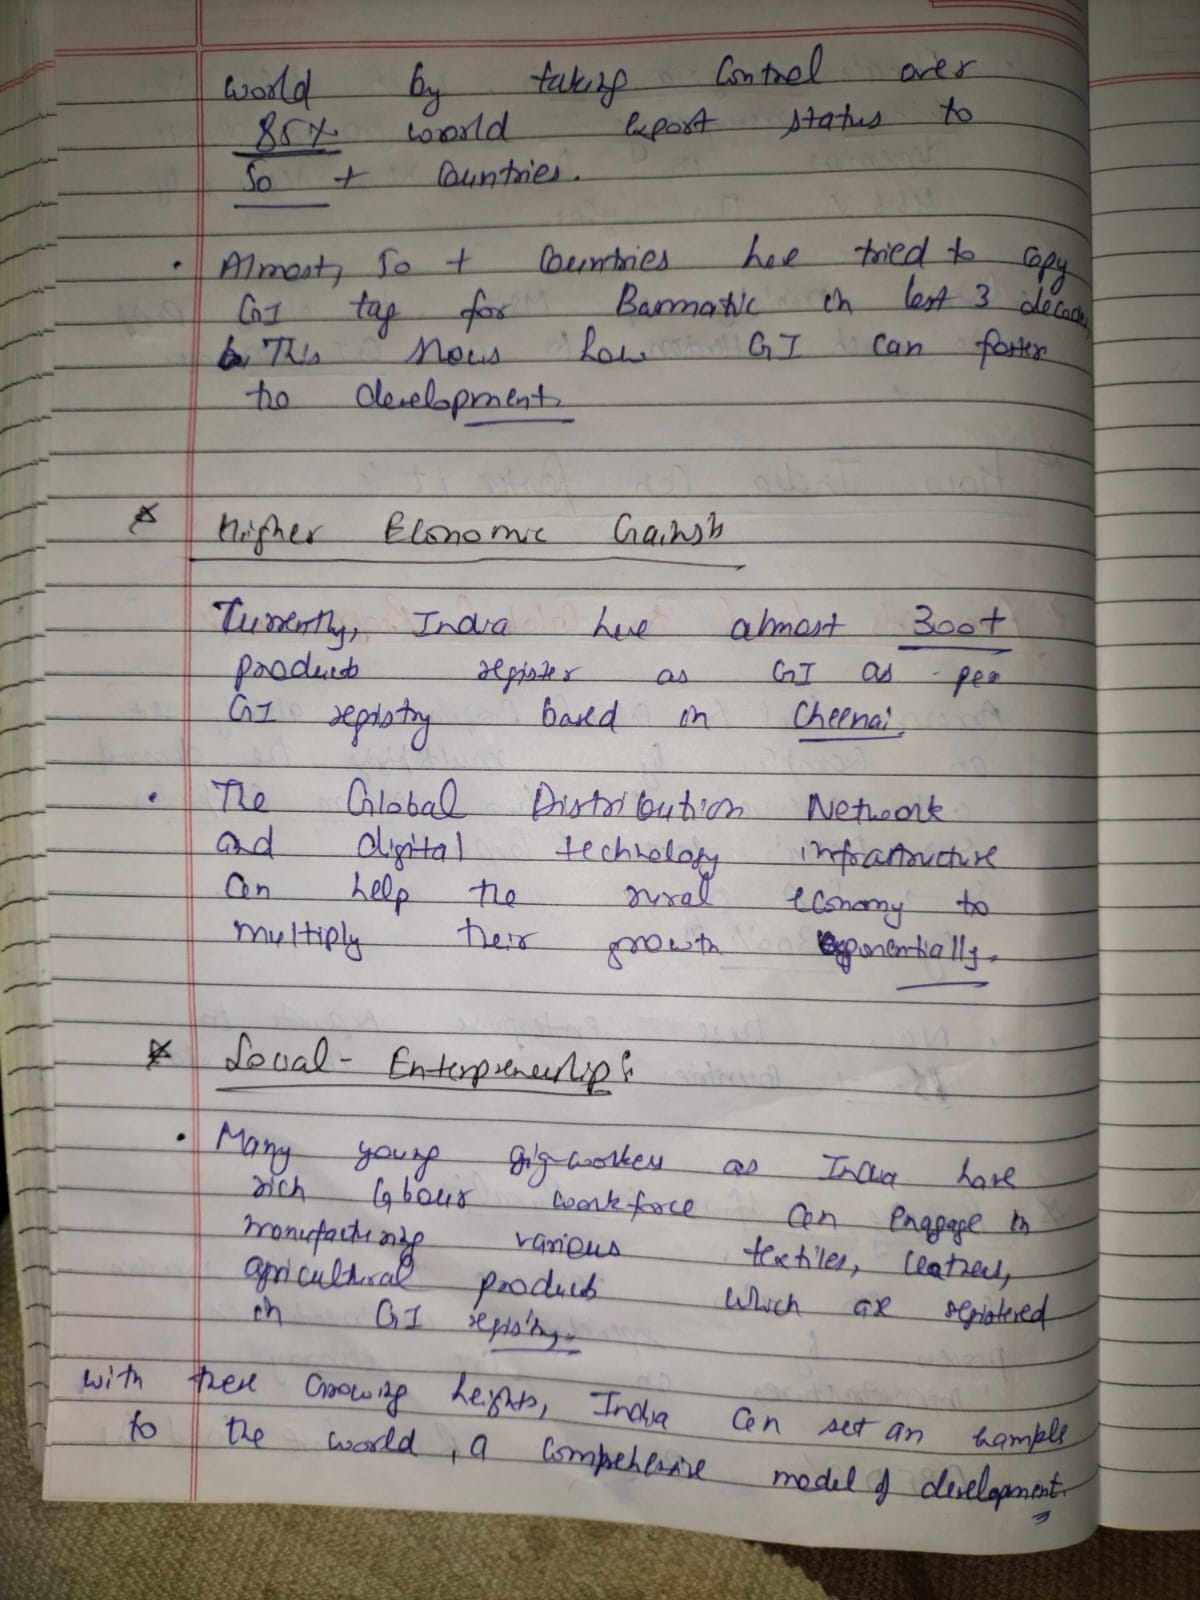 world by taking Control over
85% world export status to
50 + Countries.
• Almost, 50 + Countries have tried to copy
GI tag for Basmatic in last 3 decade,
This shows how GI can foster
to development.
* Higher Economic Gains
Currently, India have almost 300+
products register as GI as per
GI registry based in Cheenai.
• The Global Distribution Network
and digital technology infrastructure
Can help the rural economy to
multiply their growth exponentially.
* Local - Enterpreneurship:
• Many young gig-workers as India have
rich labour workforce can engage in
manufacturing various textiles, leather,
agricultural products which are registered
in GI registry.
with these Growing heights, India Can set an Example
to the world, a comprehensive model of development.